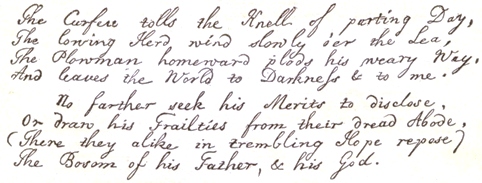 The Curfeu tolls the Knell of parting Day,
The lowing Herd wind slowly o'er the Lea,
The Plowman homeward plods his weary Way,
And leaves the World to Darkness & to me.
No farther seek his Merits to disclose,
Or draw his Frailties from their dread Abode,
(There they alike in trembling Hope repose)
The Bosom of his Father, & his God.